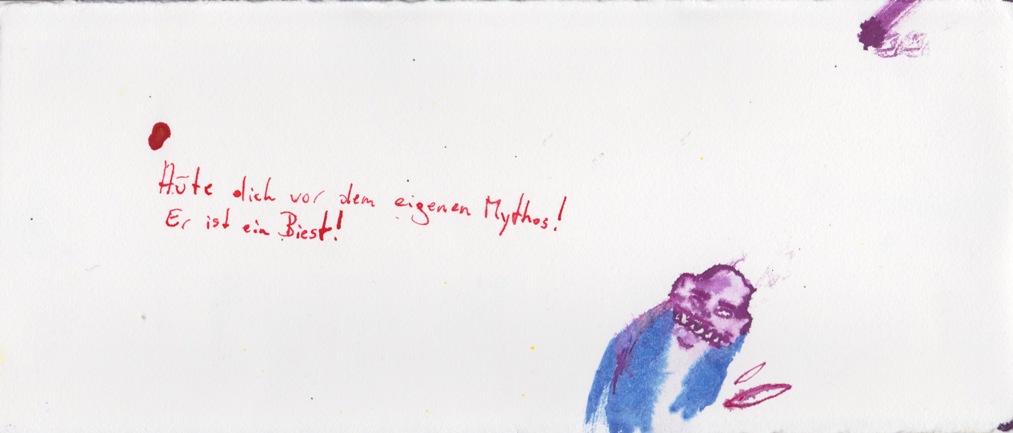 Hüte dich vor dem eigenen Mythos!
Er ist ein Biest!